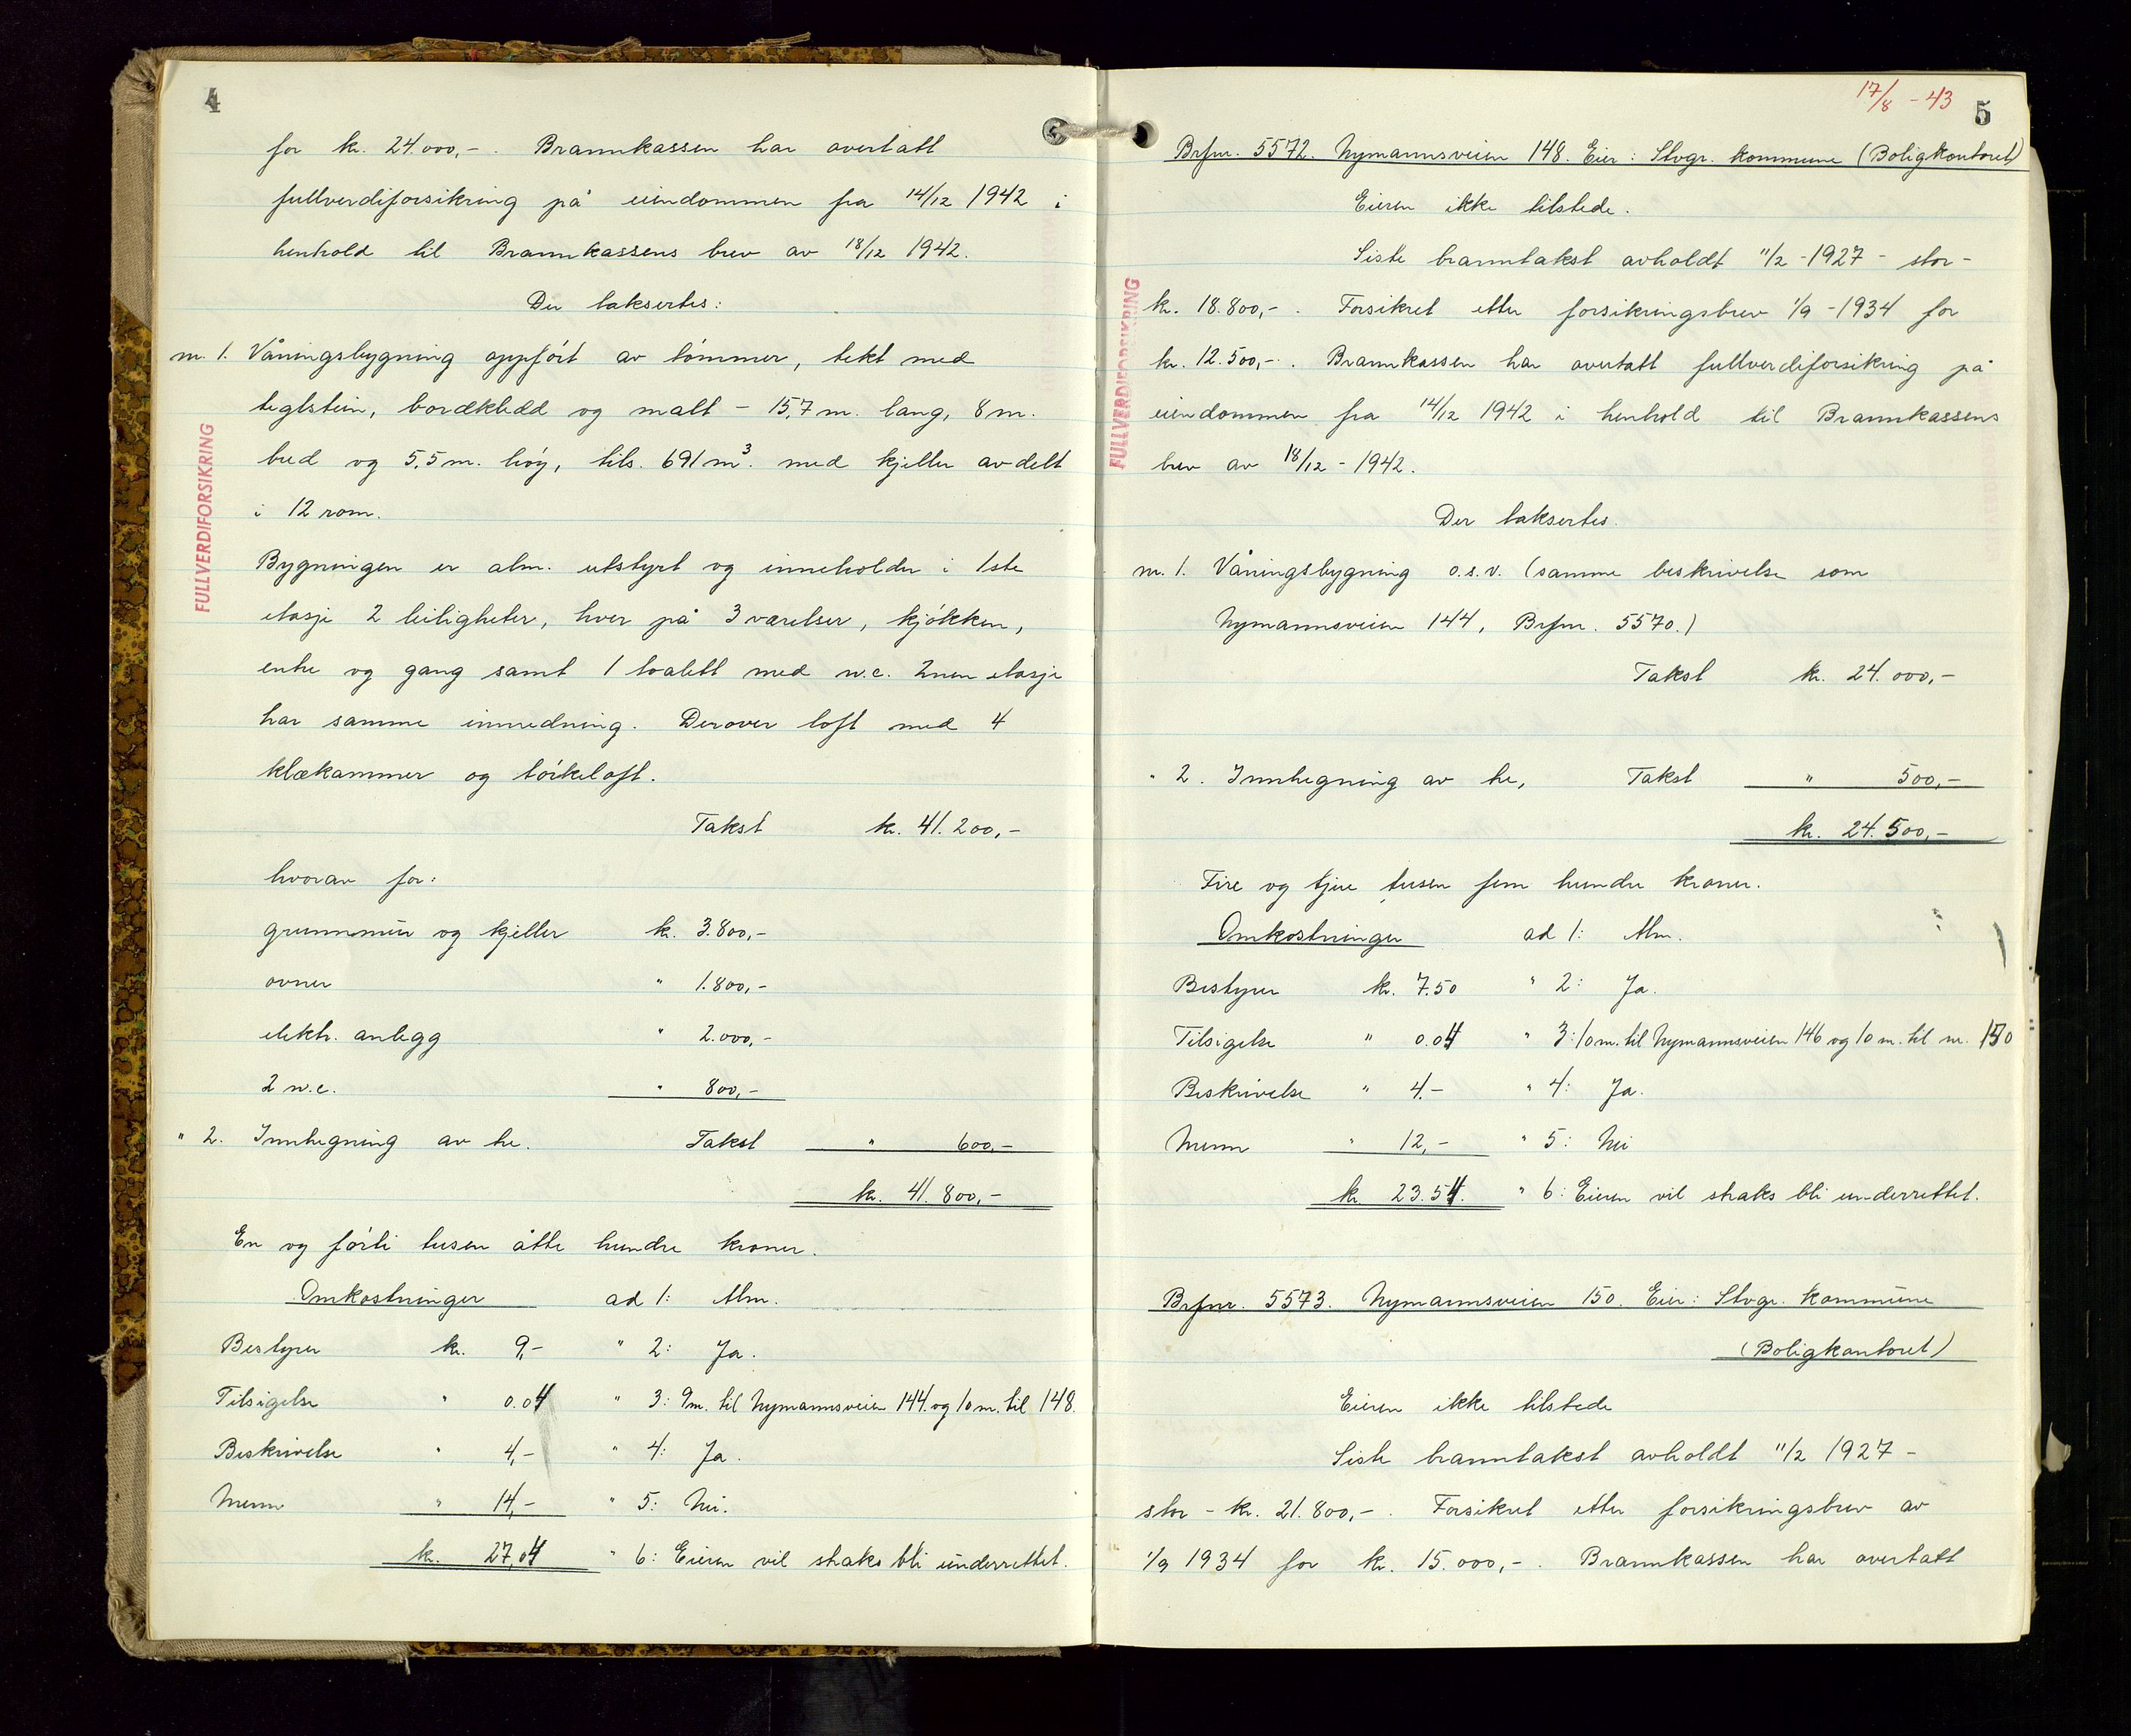 4
for kr. 24.000,- . Brannkassen har overtatt
fullverdiforsikring på eiendommen fra 14/12 1942 i
henhold til Brannkassens brev av 18/12 1942.
Der taksertes:
nr. 1. Våningsbygning oppført av tømmer, tekt med
teglstein, bordkledd og malt - 15,7 m. lang, 8 m.
bred og 5,5 m. høy, tils. 691 m³. med kjeller avdelt
i 12 rom.
FULLVERDIFORSIKRING
Bygningen er alm. utstyrt og inneholder i 1ste
etasje 2 leiligheter, hver på 3 værelser, kjøkken,
entre og gang samt 1 toalett med w.c. 2nen etasje
har samme innredning. Derover loft med 4
klækammer og tørkeloft.
Takst kr. 41.200,-
hvorav for:
grunnmur og kjeller kr. 3.800,-
ovner " 1.800,-
elektr. anlegg " 2.000,-
2 w.c. " 800,-
" 2. Innhegning av tre. Takst " 600,-
kr. 41.800,-
En og førti tusen åtte hundre kroner.
Omkostninger ad 1: Alm.
Bestyrer kr. 9,- " 2: Ja.
Tilsigelse " 0.04 " 3: 9m. til Nymannsveien 144. og 10 m. til 148.
Beskrivelse " 4,- " 4: Ja.
Menn " 14,- " 5: Nei.
kr. 27,04 " 6: Eieren vil straks bli underrettet.
17/8 - 43
5
Brfnr. 5572. Nymannsveien 148. Eier: Stvgr. kommune (Boligkontoret)
Eieren ikke tilstede.
Siste branntakst avholdt 11/2 - 1927 - stor -
kr. 18.800,- . Forsikret etter forsikringsbrev 1/9 - 1934 for
kr. 12.500,- . Brannkassen har overtatt fullverdiforsikring på
eiendommen fra 14/12 1942 i henhold til Brannkassens
brev av 18/12 - 1942.
FULLVERDIFORSIKRING
Der taksertes.
nr. 1. Våningsbygning o.s.v. (samme beskrivelse som
Nymannsveien 144, Brfnr. 5570.)
Takst kr. 24.000,-
" 2. Innhegning av tre, Takst " 500,-
kr. 24.500,-
Fire og tjue tusen fem hundre kroner.
Omkostninger ad 1: Alm.
Bestyrer kr. 7.50 " 2: Ja.
Tilsigelse " 0.04 " 3: 10 m. til Nymannsveien 146 og 10 m. til nr. 150
Beskrivelse " 4.- " 4: Ja.
Menn " 12,- " 5: Nei
kr. 23.54. " 6: Eieren vil straks bli underrettet.
Brfnr. 5573. Nymannsveien 150. Eier: Stvgr. kommune
(Boligkontoret)
Eieren ikke tilstede
Siste branntakst avholdt 11/2 1927 -
stor - kr. 21.800,- . Forsikret etter forsikringsbrev av
1/9 1934 for kr. 15.000,- . Brannkassen har overtatt